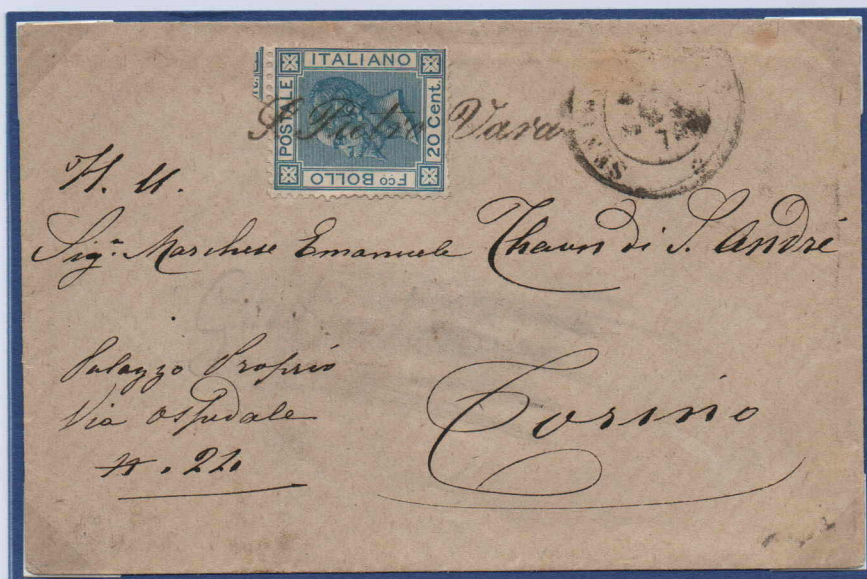 POSTALE ITALIANO 20 Cent. Fco BOLLO
S. Pietro Vara
SES
H. U.
Sigr. Marchese Emanuele Thaon di S. André
Palazzo Proprio
Via Ospedale
N. 24
Torino